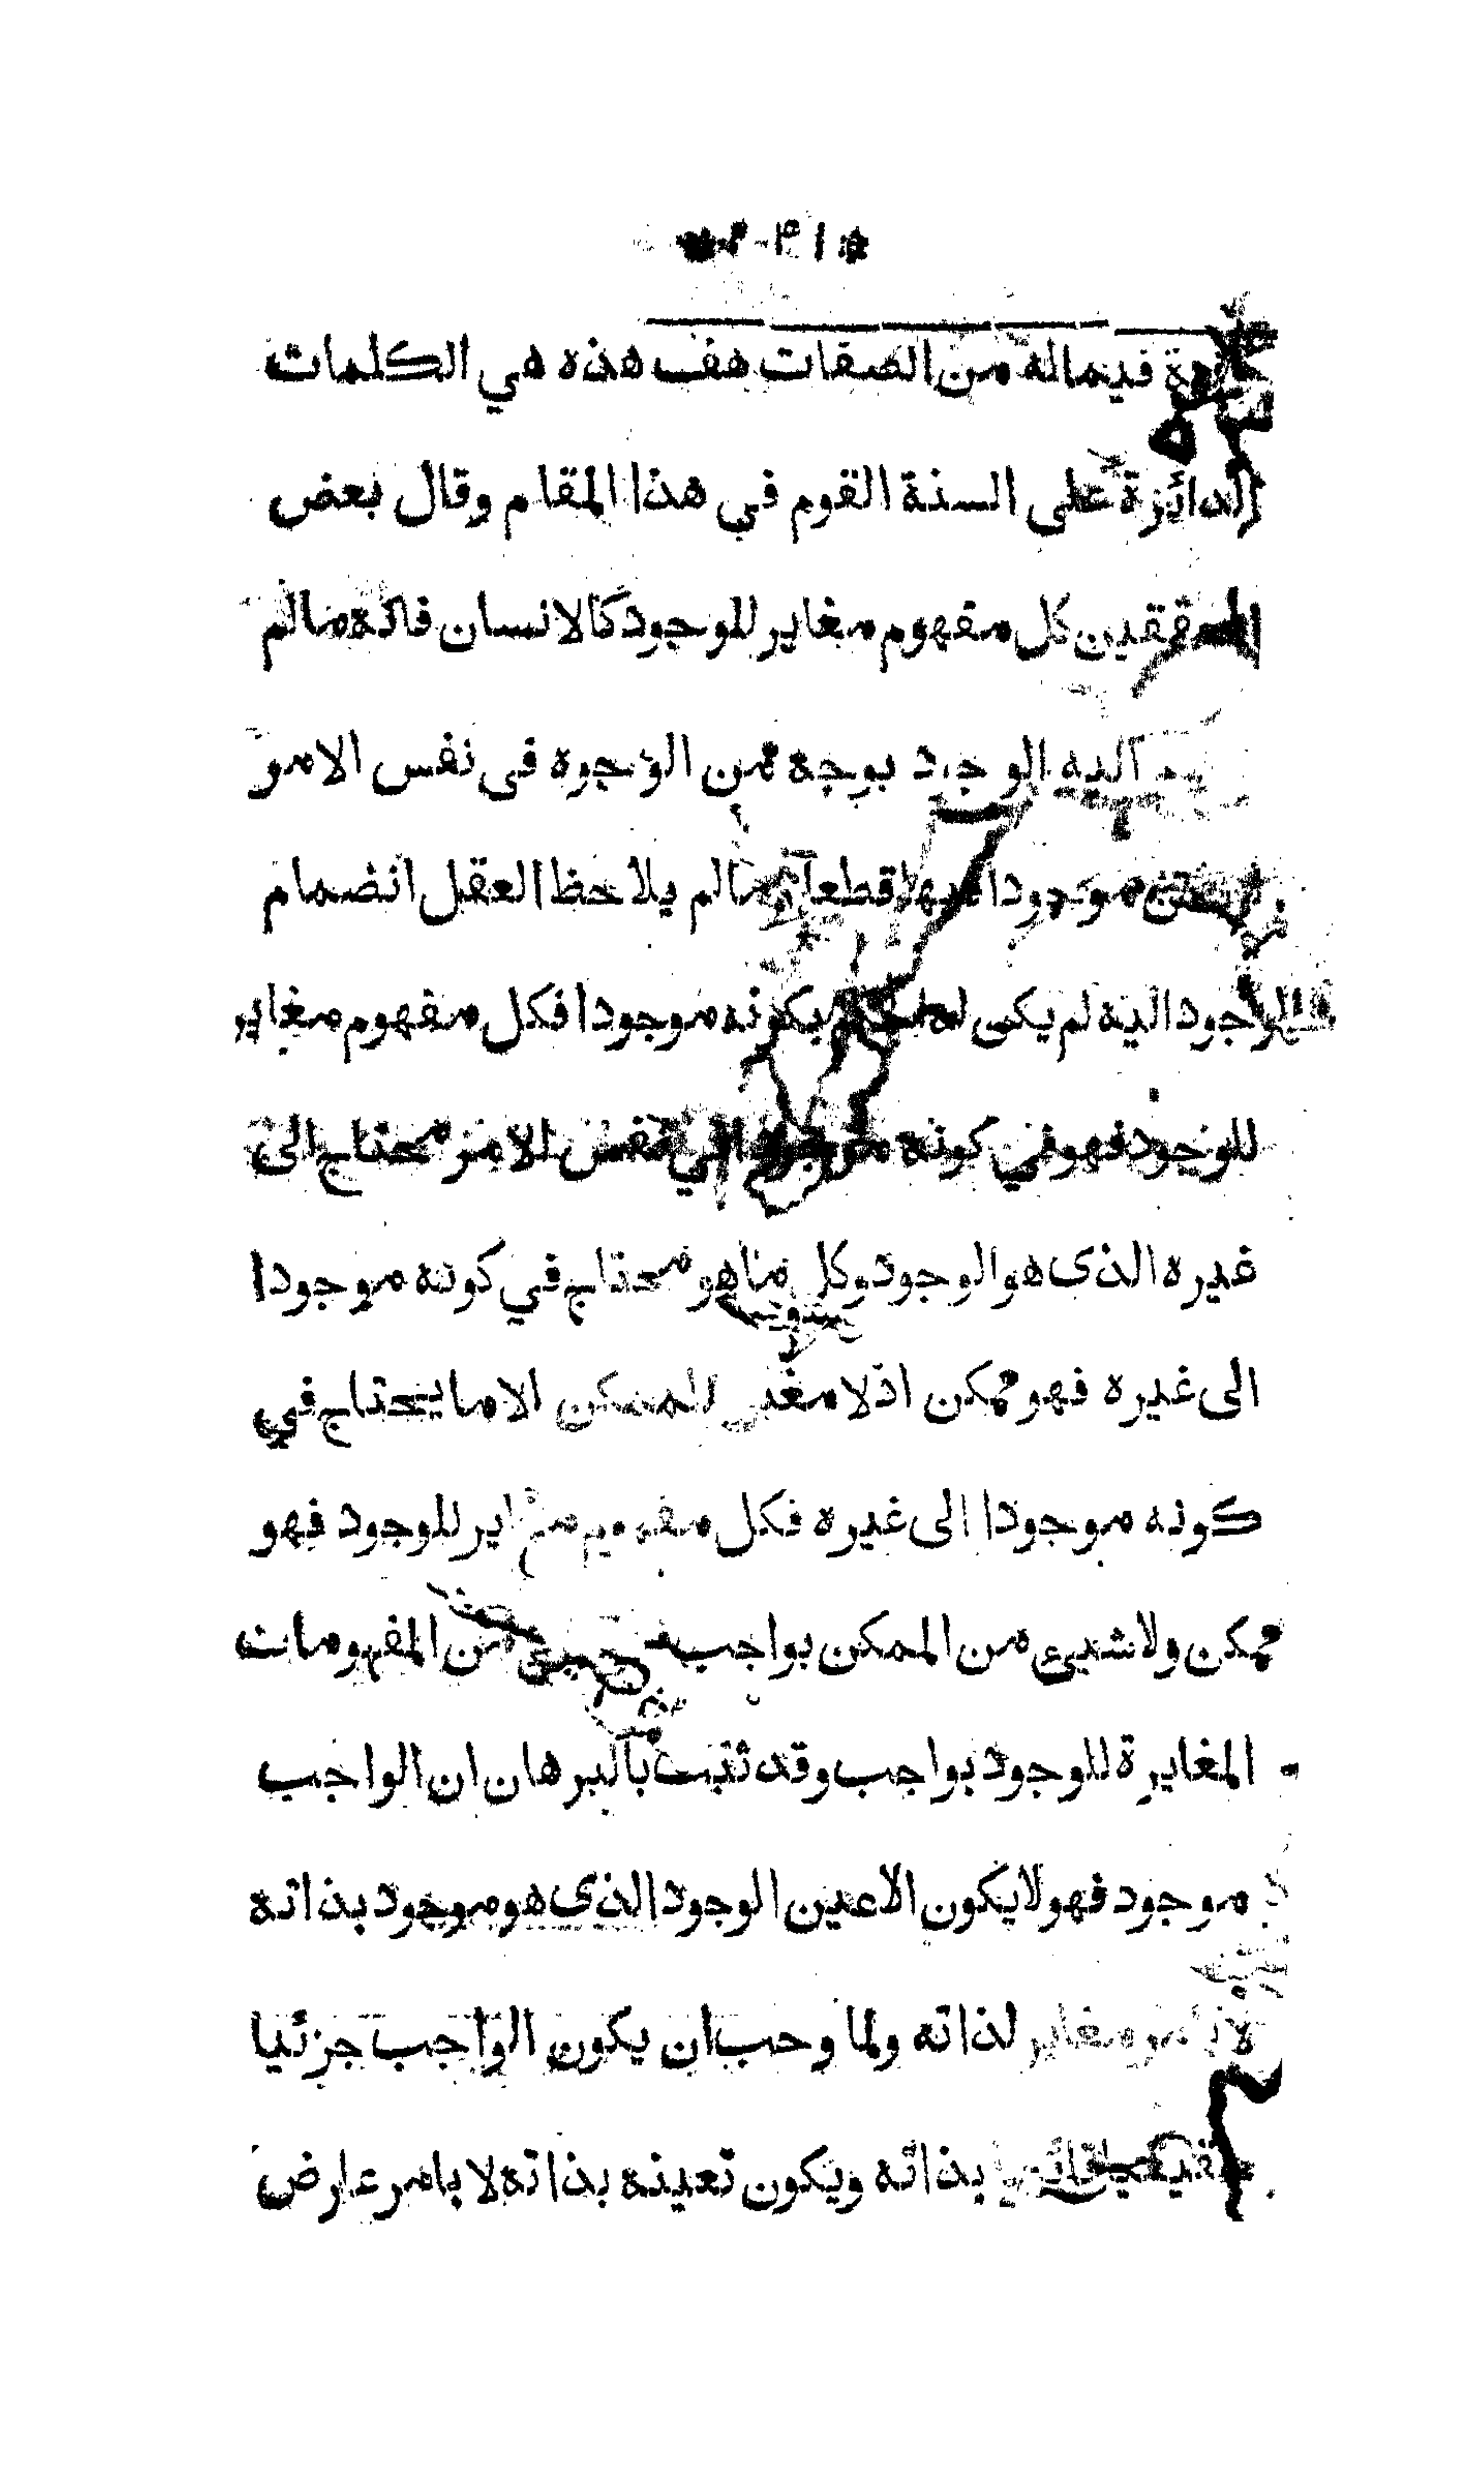 فيماله من الصفات هف هذه هي الكلمات
الدائرة على السنة القوم في هذا المقام وقال بعض
المحققين كل مفهوم مغاير للوجود كالانسان فانه مالم
اليه الوجود بوجه من الوجوه في نفس الامر
موجودا فيها قطعا مالم يلاحظ العقل انضمام
الوجود اليه لم يكن له بكونه موجودا فكل مفهوم مغاير
للوجود فهو في كونه موجودا في نفس الامر محتاج الى
غيره الذى هو الوجود وكل ما هو محتاج في كونه موجودا
الى غيره فهو ممكن اذ لا معنى للممكن الا ما يحتاج في
كونه موجودا الى غيره فكل مفهوم مغاير للوجود فهو
ممكن ولا شيىء من الممكن بواجب من المفهومات
المغايرة للوجود بواجب وقد ثبت بالبرهان ان الواجب
موجود فهو لا يكون الا عين الوجود الذى هو موجود بذاته
لا بامر مغاير لذاته ولما وجب ان يكون الواجب جزئيا
بذاته ويكون تعينه بذاته لا بامر عارض